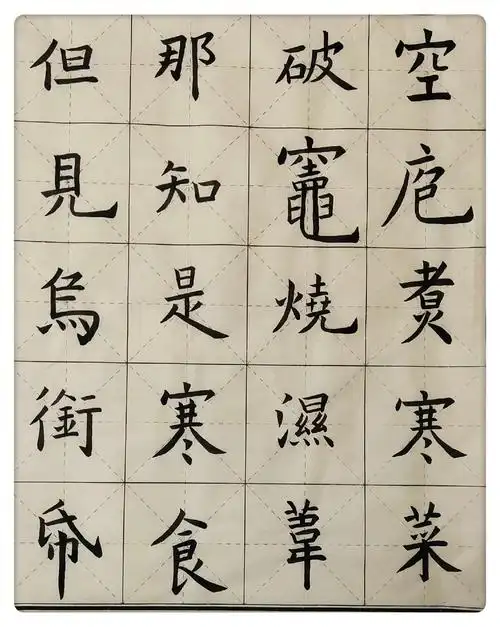 空庖煑寒菜
破竈燒濕葦
那知是寒食
但見烏銜帋